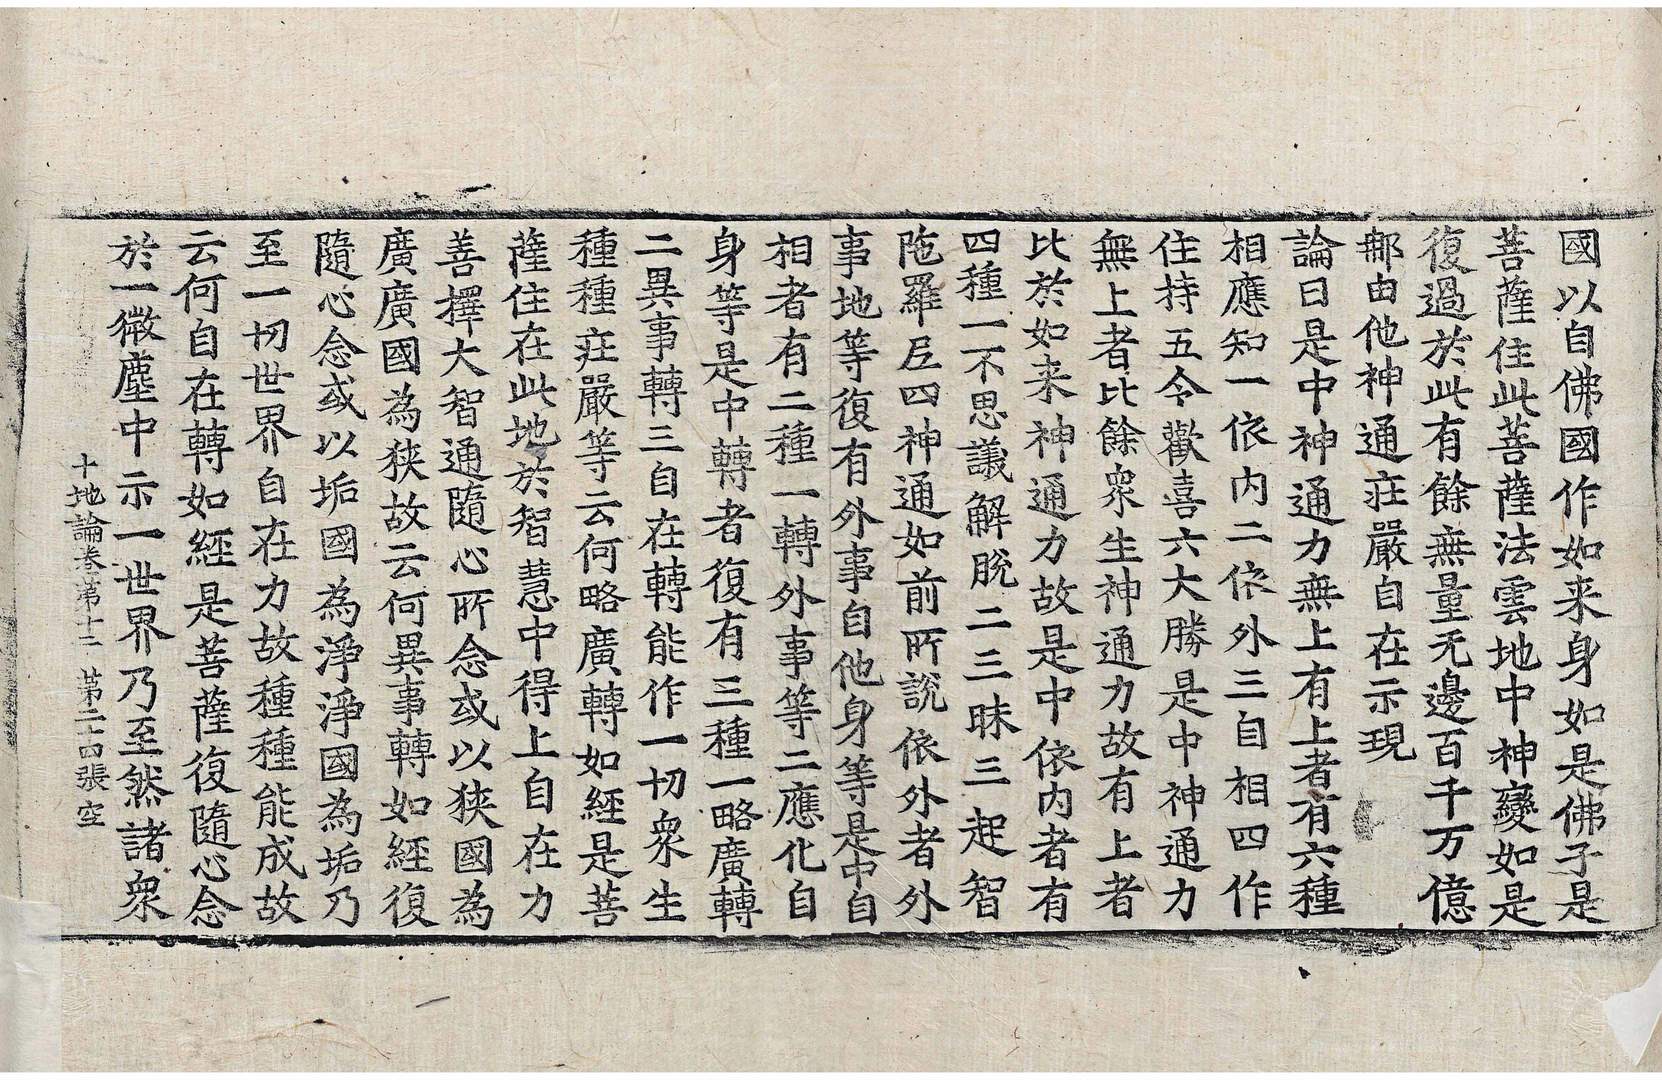 國以自佛國作如来身如是佛子是
菩薩住此菩薩法雲地中神變如是
復過於此有餘無量无邊百千万億
那由他神通莊嚴自在示現
論曰是中神通力無上有上者有六種
相應知一依内二依外三自相四作
住持五令歡喜六大勝是中神通力
無上者比餘衆生神通力故有上者
比於如来神通力故是中依内者有
四種一不思議解脫二三昧三起智
陁羅尼四神通如前所說依外者外
事地等復有外事自他身等是中自
相者有二種一轉外事等二應化自
身等是中轉者復有三種一略廣轉
二異事轉三自在轉能作一切衆生
種種莊嚴等云何略廣轉如經是菩
薩住在此地於智慧中得上自在力
善擇大智通隨心所念或以狹國為
廣廣國為狹故云何異事轉如經復
隨心念或以垢國為淨淨國為垢乃
至一切世界自在力故種種能成故
云何自在轉如經是菩薩復隨心念
於一微塵中示一世界乃至然諸衆
十地論卷第十二 第二十四張 空